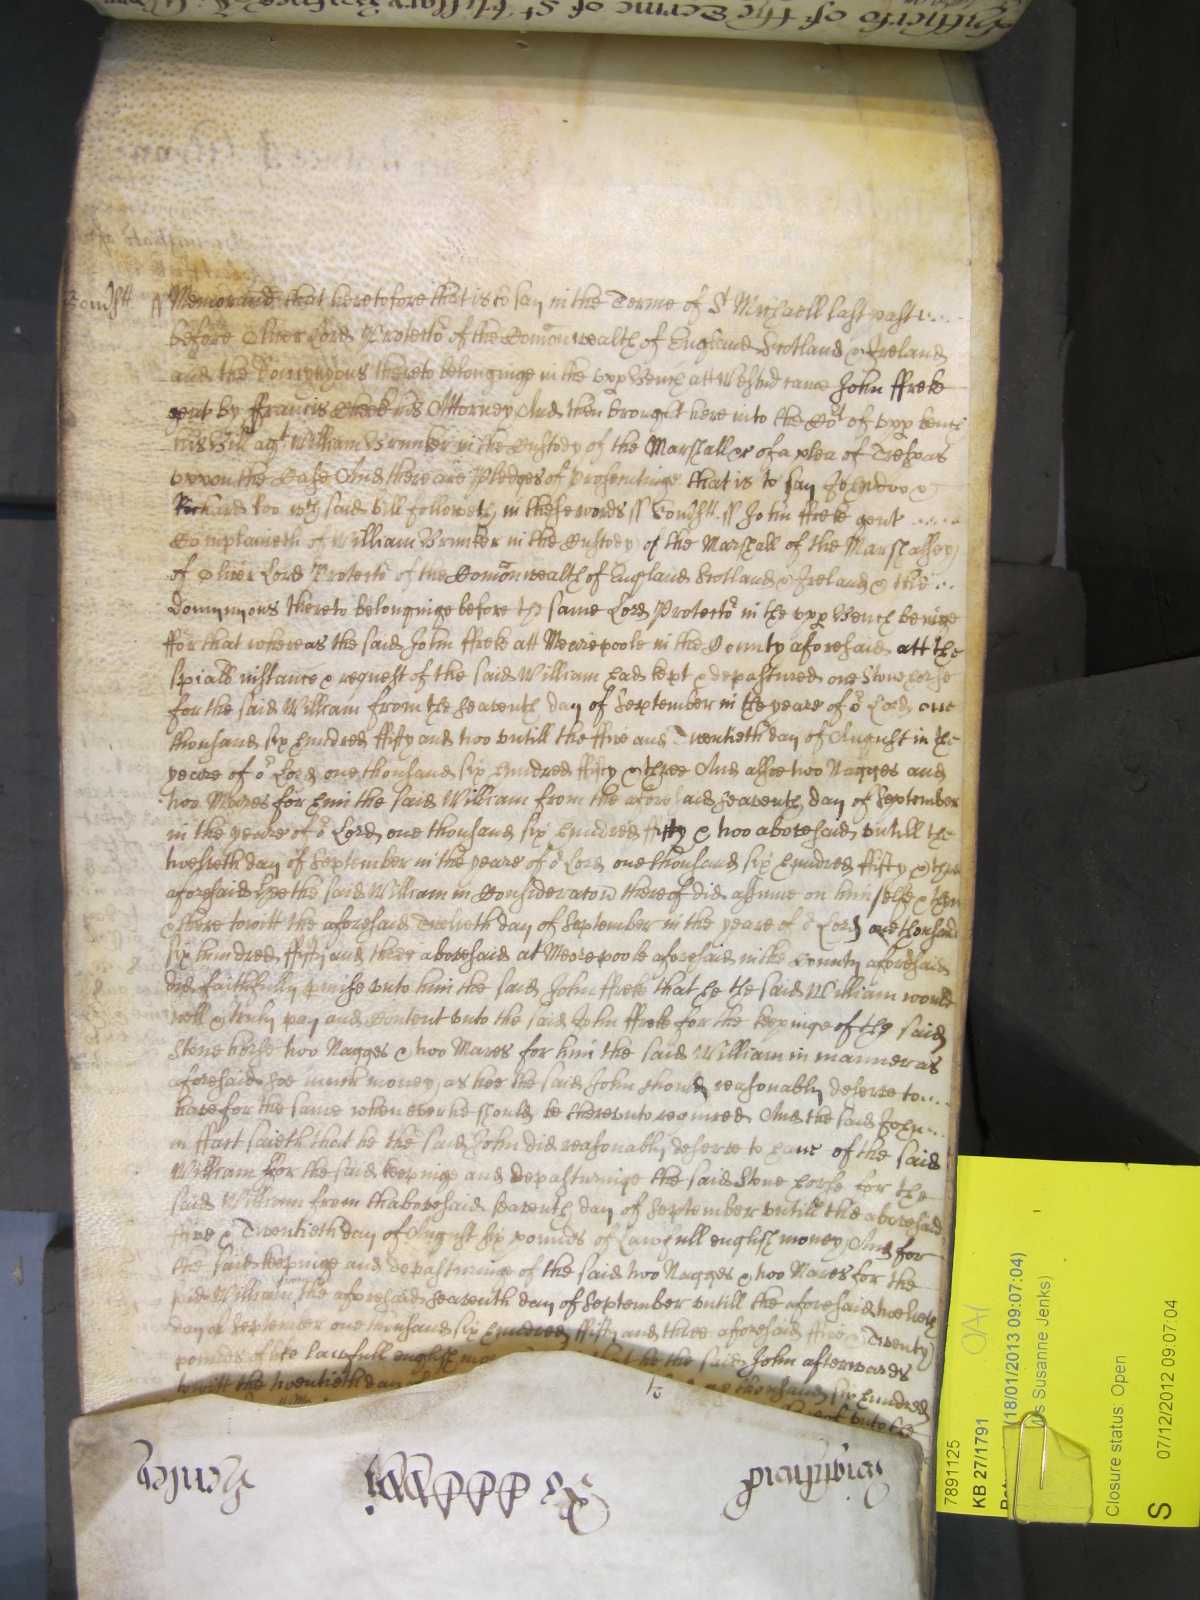 of the Terme of St Hillary
Memorand that heretofore that is to say in the Terme of St Michaell last past
before Oliver Lord Protector of the Comonwealth of England Scotland & Ireland
and the Domynyons thereto belonginge in the upp Bench att Westmr came John ffreke
gent by ffrancis Cheek his Attorney And then brought here into the Cot of upp bench
his Bill agt William Brunker in the Custody of the Marshall &c of a plea of Trespas
uppon the Case And there are Pledges of Prosecutinge that is to say John doo &
Richard Roo wch said bill followeth in these words ss ss John ffreke gent
Complaineth of William Brunker in the Custody of the Marshall of the Marshalsey
of Oliver Lord Protector of the Comonwealth of England Scotland & Ireland & the
Domynyons thereto belonginge before the same Lord Protector in the upp Bench beinge
ffor that whereas the said John ffreke att in the County aforesaid att the
spiall instance & request of the said William had kept & depastured one Stone horse
for the said William from the Seaventh day of September in the yeare of or Lord one
thousand six hundred ffifty and two untill the ffive and Twentieth day of August in the
yeare of or Lord one thousand six hundred ffifty & three And alsoe two Nagges and
two Mares for him the said William from the aforesaid Seaventh day of September
in the yeare of or Lord one thousand six hundred ffifty & two abovesaid untill the
twelveth day of September in the yeare of or Lord one thousand six hundred ffifty & three
aforesaid Hee the said William in Consideracon thereof did assume on himselfe & then
& there towitt the aforesaid Twelveth day of September in the yeare of or Lord one thousand
six hundred ffifty and three abovesaid at aforesaid in the County aforesaid
did faithfully promise unto him the said John ffreke that he the said William would
well & truly pay and Content unto the said John ffreke for the keepinge of the said
Stone horse two Nagges & two Mares for him the said William in manner as
aforesaid soe much money as hee the said John should reasonably deserve to
have for the same when ever he should be thereunto required And the said John
in ffact saieth that he the said John did reasonably deserve to have of the said
William ffor the said keepinge and depasturinge the said Stone horse for the
said William from thabovesaid Seaventh day of September untill the abovesaid
ffive & Twentieth day of August six pounds of Lawfull english money And for
the said keepinge and depasturinge of the said two Nagges & two Mares for the
said William the aforesaid Seaventh day of September untill the aforesaid twelveth
day of September one thousand six hundred ffifty and three aforesaid ffive & Twenty
pounds of like lawfull english he the said John afterwards
towitt the twentieth day thousand six hundred
unto the
7891125
KB 27/1791
(18/01/2013 09:07:04)
Susanne Jenks)
Closure status: Open
S
07/12/2012 09:07:04